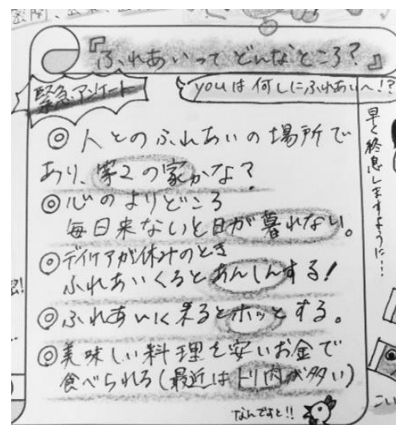 『ふれあいって どんなところ?』
緊急アンケート
youは何しにふれあいへ!?
◎人とのふれあいの場所で
あり、第2の家かな?
◎心のよりどころ
毎日来ないと日が暮れない。
◎デイケアが休みのとき
ふれあいくるとあんしんする!
◎ふれあいに来るとホッとする。
◎美味しい料理を安いお金で
食べられる(最近はトリ肉が多い)
なんですと!!
早く終息しますように…